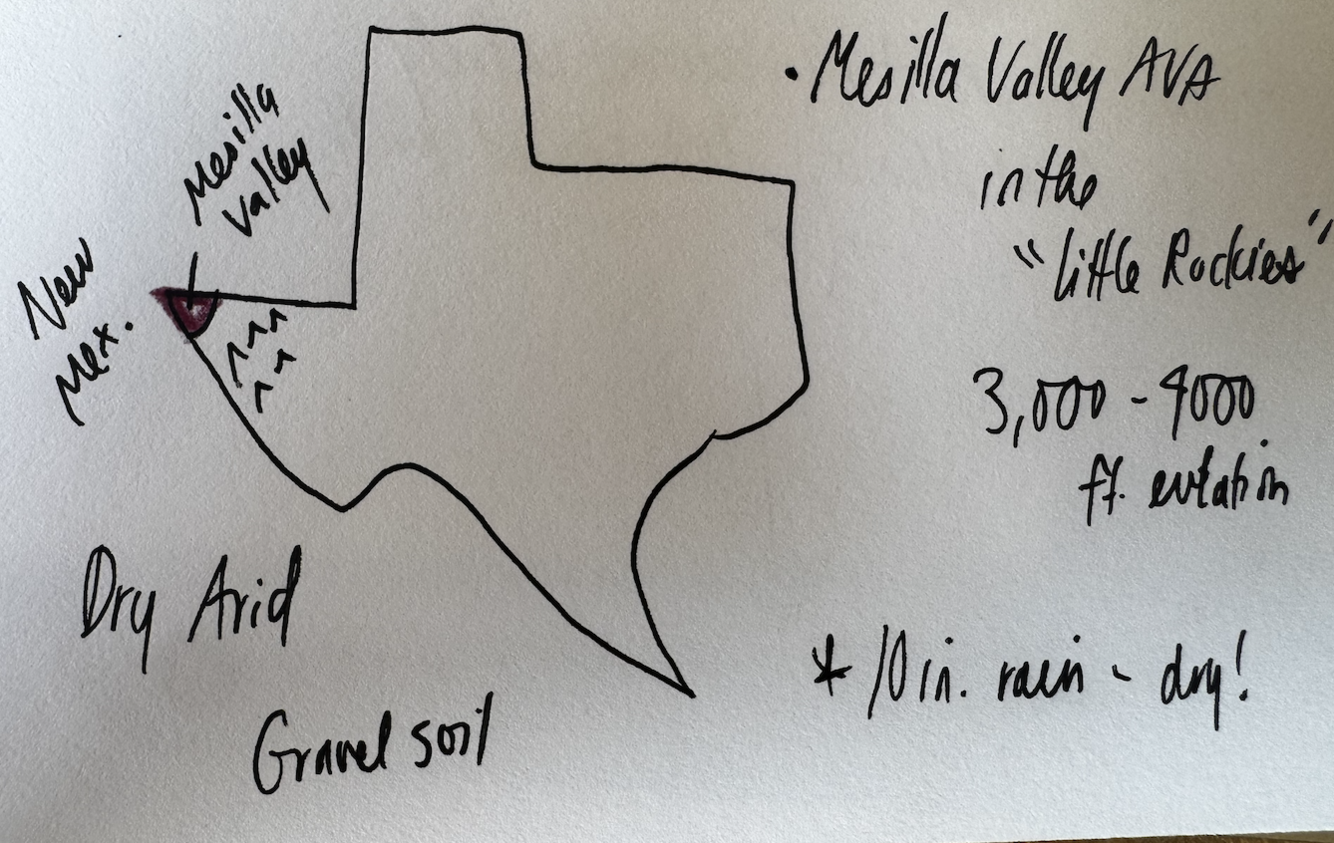 Mesilla
Valley
New
Mex.
• Mesilla Valley AVA
in the
"little Rockies"
3,000 - 4000
ft. evlation
Dry Arid
Gravel soil
* 10 in. rain - dry!